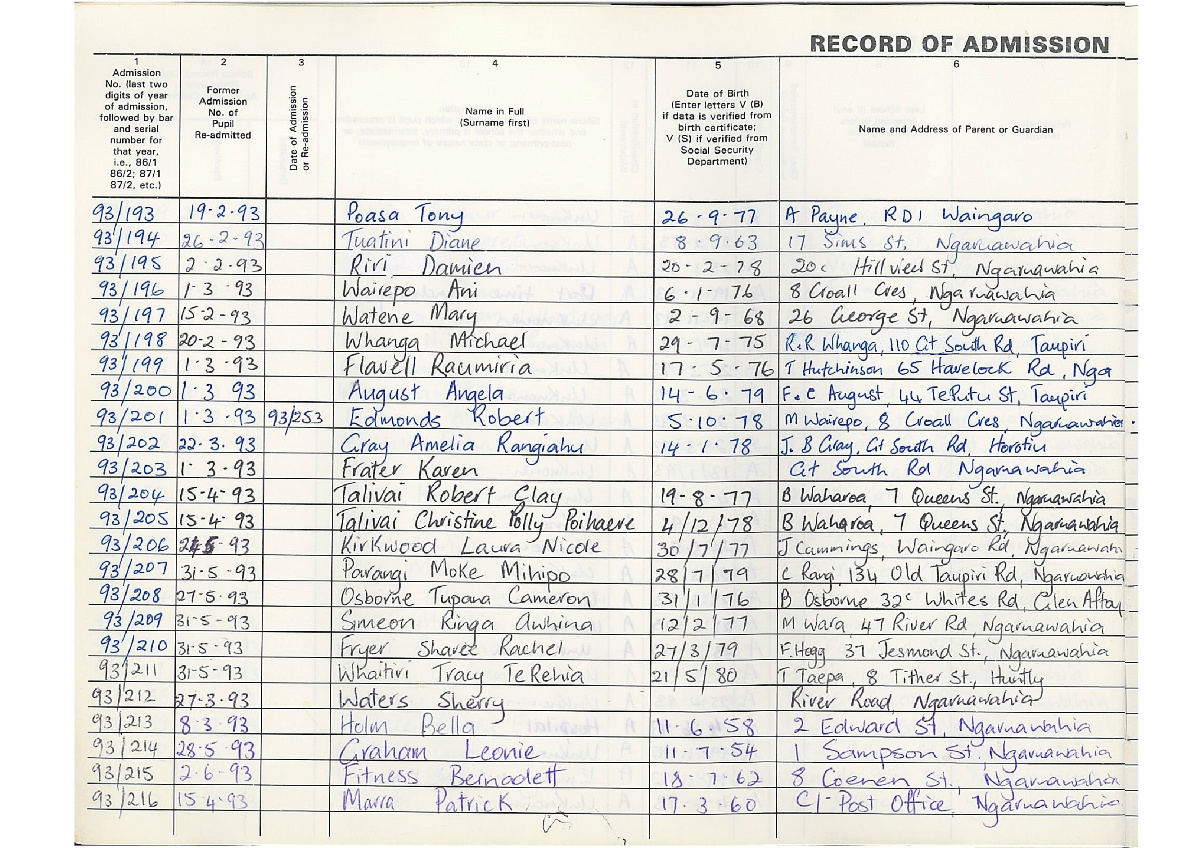 RECORD OF ADMISSION
1 2 3 4 5 6
Admission No. (last two digits of year of admission, followed by bar and serial number for that year, i.e., 86/1 86/2; 87/1 87/2, etc.)
Former Admission No. of Pupil Re-admitted
Date of Admission or Re-admission
Name in Full (Surname first)
Date of Birth (Enter letters V (B) if data is verified from birth certificate; V (S) if verified from Social Security Department)
Name and Address of Parent or Guardian
93/193 19-2-93 Poasa Tony 26-9-77 A Payne, RD1 Waingaro
93/194 26-2-93 Tuatini Diane 8-9-63 17 Sims St, Ngaruawahia
93/195 2-2-93 Riri Damien 20-2-78 20c Hillview St, Ngaruawahia
93/196 1-3-93 Wairepo Ani 6-1-76 8 Croall Cres, Ngaruawahia
93/197 15-2-93 Watene Mary 2-9-68 26 George St, Ngaruawahia
93/198 20-2-93 Whanga Michael 29-7-75 R.R Whanga, 110 Gt South Rd, Taupiri
93/199 1-3-93 Flavell Raumiria 17-5-76 T Hutchinson 65 Havelock Rd, Nga
93/200 1-3-93 August Angela 14-6-79 F.C August, 44 TePutu St, Taupiri
93/201 1-3-93 93/253 Edmonds Robert 5-10-78 M Wairepo, 8 Croall Cres, Ngaruawahia
93/202 22-3-93 Gray Amelia Rangiahu 14-1-78 J.B Gray, Gt South Rd, Horotiu
93/203 1-3-93 Frater Karen Gt South Rd Ngaruawahia
93/204 15-4-93 Talivai Robert Clay 19-8-77 B Waharoa, 7 Queens St., Ngaruawahia
93/205 15-4-93 Talivai Christine Polly Poihaere 4/12/78 B Waharoa, 7 Queens St, Ngaruawahia
93/206 Kirkwood Laura Nicole 30/7/77 J Cummings, Waingaro Rd, Ngaruawah
93/207 31-5-93 Parangi Moke Mihipo 28/7/79 C Rangi, 134 Old Taupiri Rd, Ngaruawahia
93/208 27-5-93 Osborne Tupana Cameron 31/1/76 B Osborne 32c Whites Rd, Glen Aftoy
93/209 31-5-93 Simeon Ringa Awhina 12/2/77 M Wara, 47 River Rd, Ngaruawahia
93/210 31-5-93 Fryer Sharee Rachel 27/3/79 F.Hogg 37 Jesmond St., Ngaruawahia
93/211 31-5-93 Whaitiri Tracy TeRehia 21/5/80 T Taepa, 8 Tither St., Huntly
93/212 27-3-93 Waters Sherry River Road, Ngaruawahia
93/213 8-3-93 Holm Bella 11-6-58 2 Edward St, Ngaruawahia
93/214 28-5-93 Graham Leonie 11-7-54 1 Sampson St, Ngaruawahia
93/215 2-6-93 Fitness Bernadett 18-7-62 8 Coenen St., Ngaruawahia
93/216 15-4-93 Marra Patrick 17-3-60 C/- Post Office, Ngaruawahia